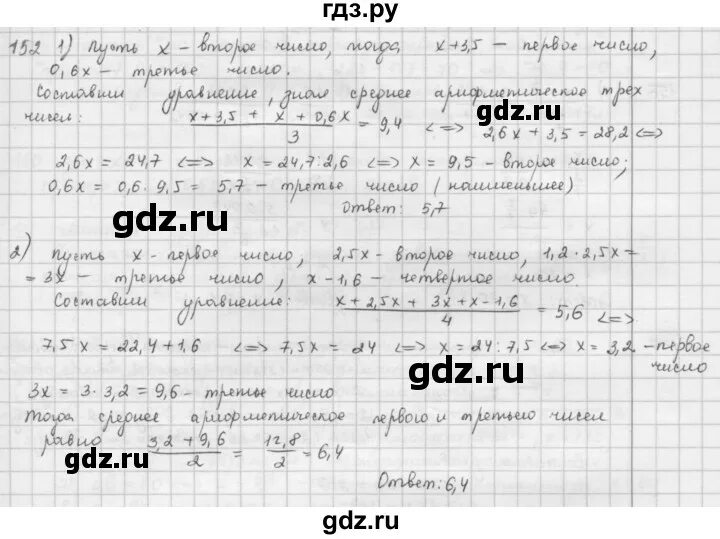 гдз.ру
152 1) Пусть x – второе число, тогда x+3,5 – первое число,
0,6x – третье число.
Составим уравнение, зная среднее арифметическое трех
чисел: (x+3,5 + x + 0,6x)/3 = 9,4 <=> 2,6x + 3,5 = 28,2 <=>
2,6x = 24,7 <=> x = 24,7:2,6 <=> x = 9,5 – второе число;
0,6x = 0,6 · 9,5 = 5,7 – третье число (наименьшее)
Ответ: 5,7
2) Пусть x – первое число, 2,5x – второе число, 1,2 · 2,5x =
= 3x – третье число, x – 1,6 – четвертое число.
Составим уравнение: (x + 2,5x + 3x + x – 1,6)/4 = 5,6 <=>
7,5x = 22,4 + 1,6 <=> 7,5x = 24 <=> x = 24 : 7,5 <=> x = 3,2 – первое
число
3x = 3 · 3,2 = 9,6 – третье число
Тогда среднее арифметическое первого и третьего чисел
равно (3,2 + 9,6)/2 = 12,8/2 = 6,4
Ответ: 6,4
gdz.ru
gdz.ru
gdz.ru
gdz.ru
gdz.ru
gdz.ru